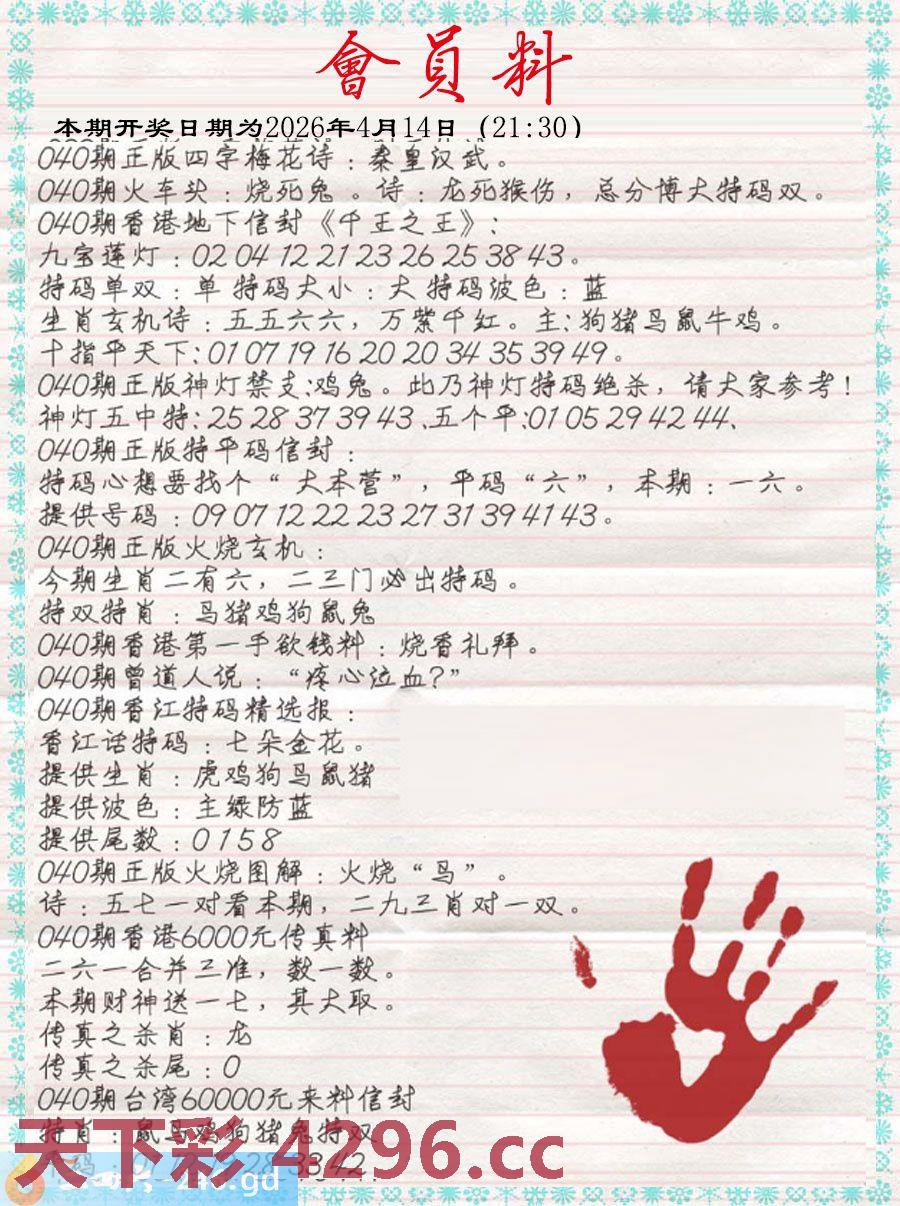 會員料
本期开奖日期为2026年4月14日（21:30）
040期正版四字梅花诗：秦皇汉武。
040期火车头：烧死兔 。诗：龙死猴伤，总分博大特码双。
040期香港地下信封《千王之王》：
九宝莲灯：02 04 12 21 23 26 25 38 43。
特码单双：单 特码大小：大 特码波色：蓝
生肖玄机诗：五五六六，万紫千红。主：狗猪马鼠牛鸡。
十指平天下：01 07 19 16 20 20 34 35 39 49。
040期正版神灯禁支：鸡兔。此乃神灯特码绝杀，请大家参考！
神灯五中特：25 28 37 39 43 、五个平：01 05 29 42 44、
040期正版特平码信封：
特码心想要找个“ 大本营”，平码“六”，本期：一六。
提供号码：09 07 12 22 23 27 31 39 41 43。
040期正版火烧玄机：
今期生肖二有六，二三门必出特码。
特双特肖：马猪鸡狗鼠兔
040期香港第一手欲钱料：烧香礼拜。
040期曾道人说：“疼心泣血？”
040期香江特码精选报：
香江话特码：七朵金花。
提供生肖：虎鸡狗马鼠猪
提供波色：主绿防蓝
提供尾数：0 1 5 8
040期正版火烧图解：火烧“鸟”。
诗：五七一对看本期，二九三肖对一双。
040期香港6000元传真料
二六一合并三准，数一数。
本期财神送一七，其大取。
传真之杀肖：龙
传真之杀尾：0
040期台湾60000元来料信封
特肖：鼠马鸡狗猪兔特双
28 33 42
天下彩 4296.cc
246.gd